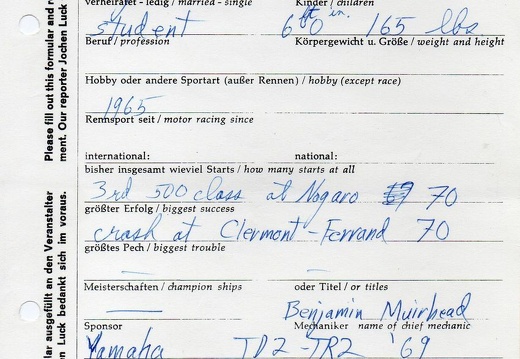 Verheiratet - ledig / married - single
Kinder / children
student
6 ft 0 in. 165 lbs
Beruf / profession
Körpergewicht u. Größe / weight and height
Hobby oder andere Sportart (außer Rennen) / hobby (except race)
1965
Rennsport seit / motor racing since
international:
national:
bisher insgesamt wieviel Starts / how many starts at all
3rd 500 class at Nogaro 70
größter Erfolg / biggest success
crash at Clermont-Ferrand 70
größtes Pech / biggest trouble
Meisterschaften / champion ships
oder Titel / or titles
Benjamin Muirhead
Sponsor
Mechaniker name of chief mechanic
Yamaha TD2-TR2 '69
Please fill out this formular and r
ment. Our reporter Jochen Luck
lar ausgefüllt an den Veranstalter
n Luck bedankt sich im voraus.